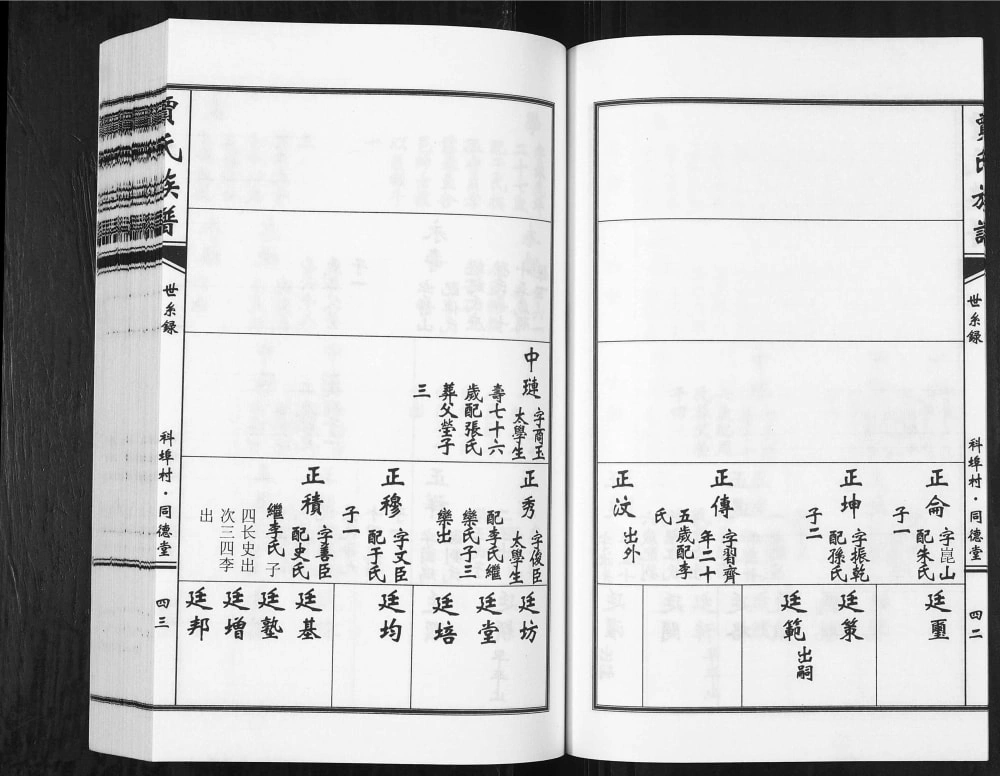 賈氏族譜
世系錄
科埠村·同德堂
四二
正侖
字崑山
配朱氏
子一
廷璽
正坤
字振乾
配孫氏
子二
廷策
廷範
出嗣
正傳
字習齊
年二十
五歲配李
氏
正汶
出外
中璉
字商玉
太學生
壽七十六
歲配張氏
葬父塋子
三
正秀
字俊臣
太學生
配李氏繼
欒氏子三
欒出
廷坊
廷堂
廷培
正穆
字文臣
配于氏
子一
廷均
正積
字善臣
配史氏
繼李氏 子
四长史出
次三四李
出
廷基
廷塾
廷增
廷邦
賈氏族譜
世系錄
科埠村·同德堂
四三